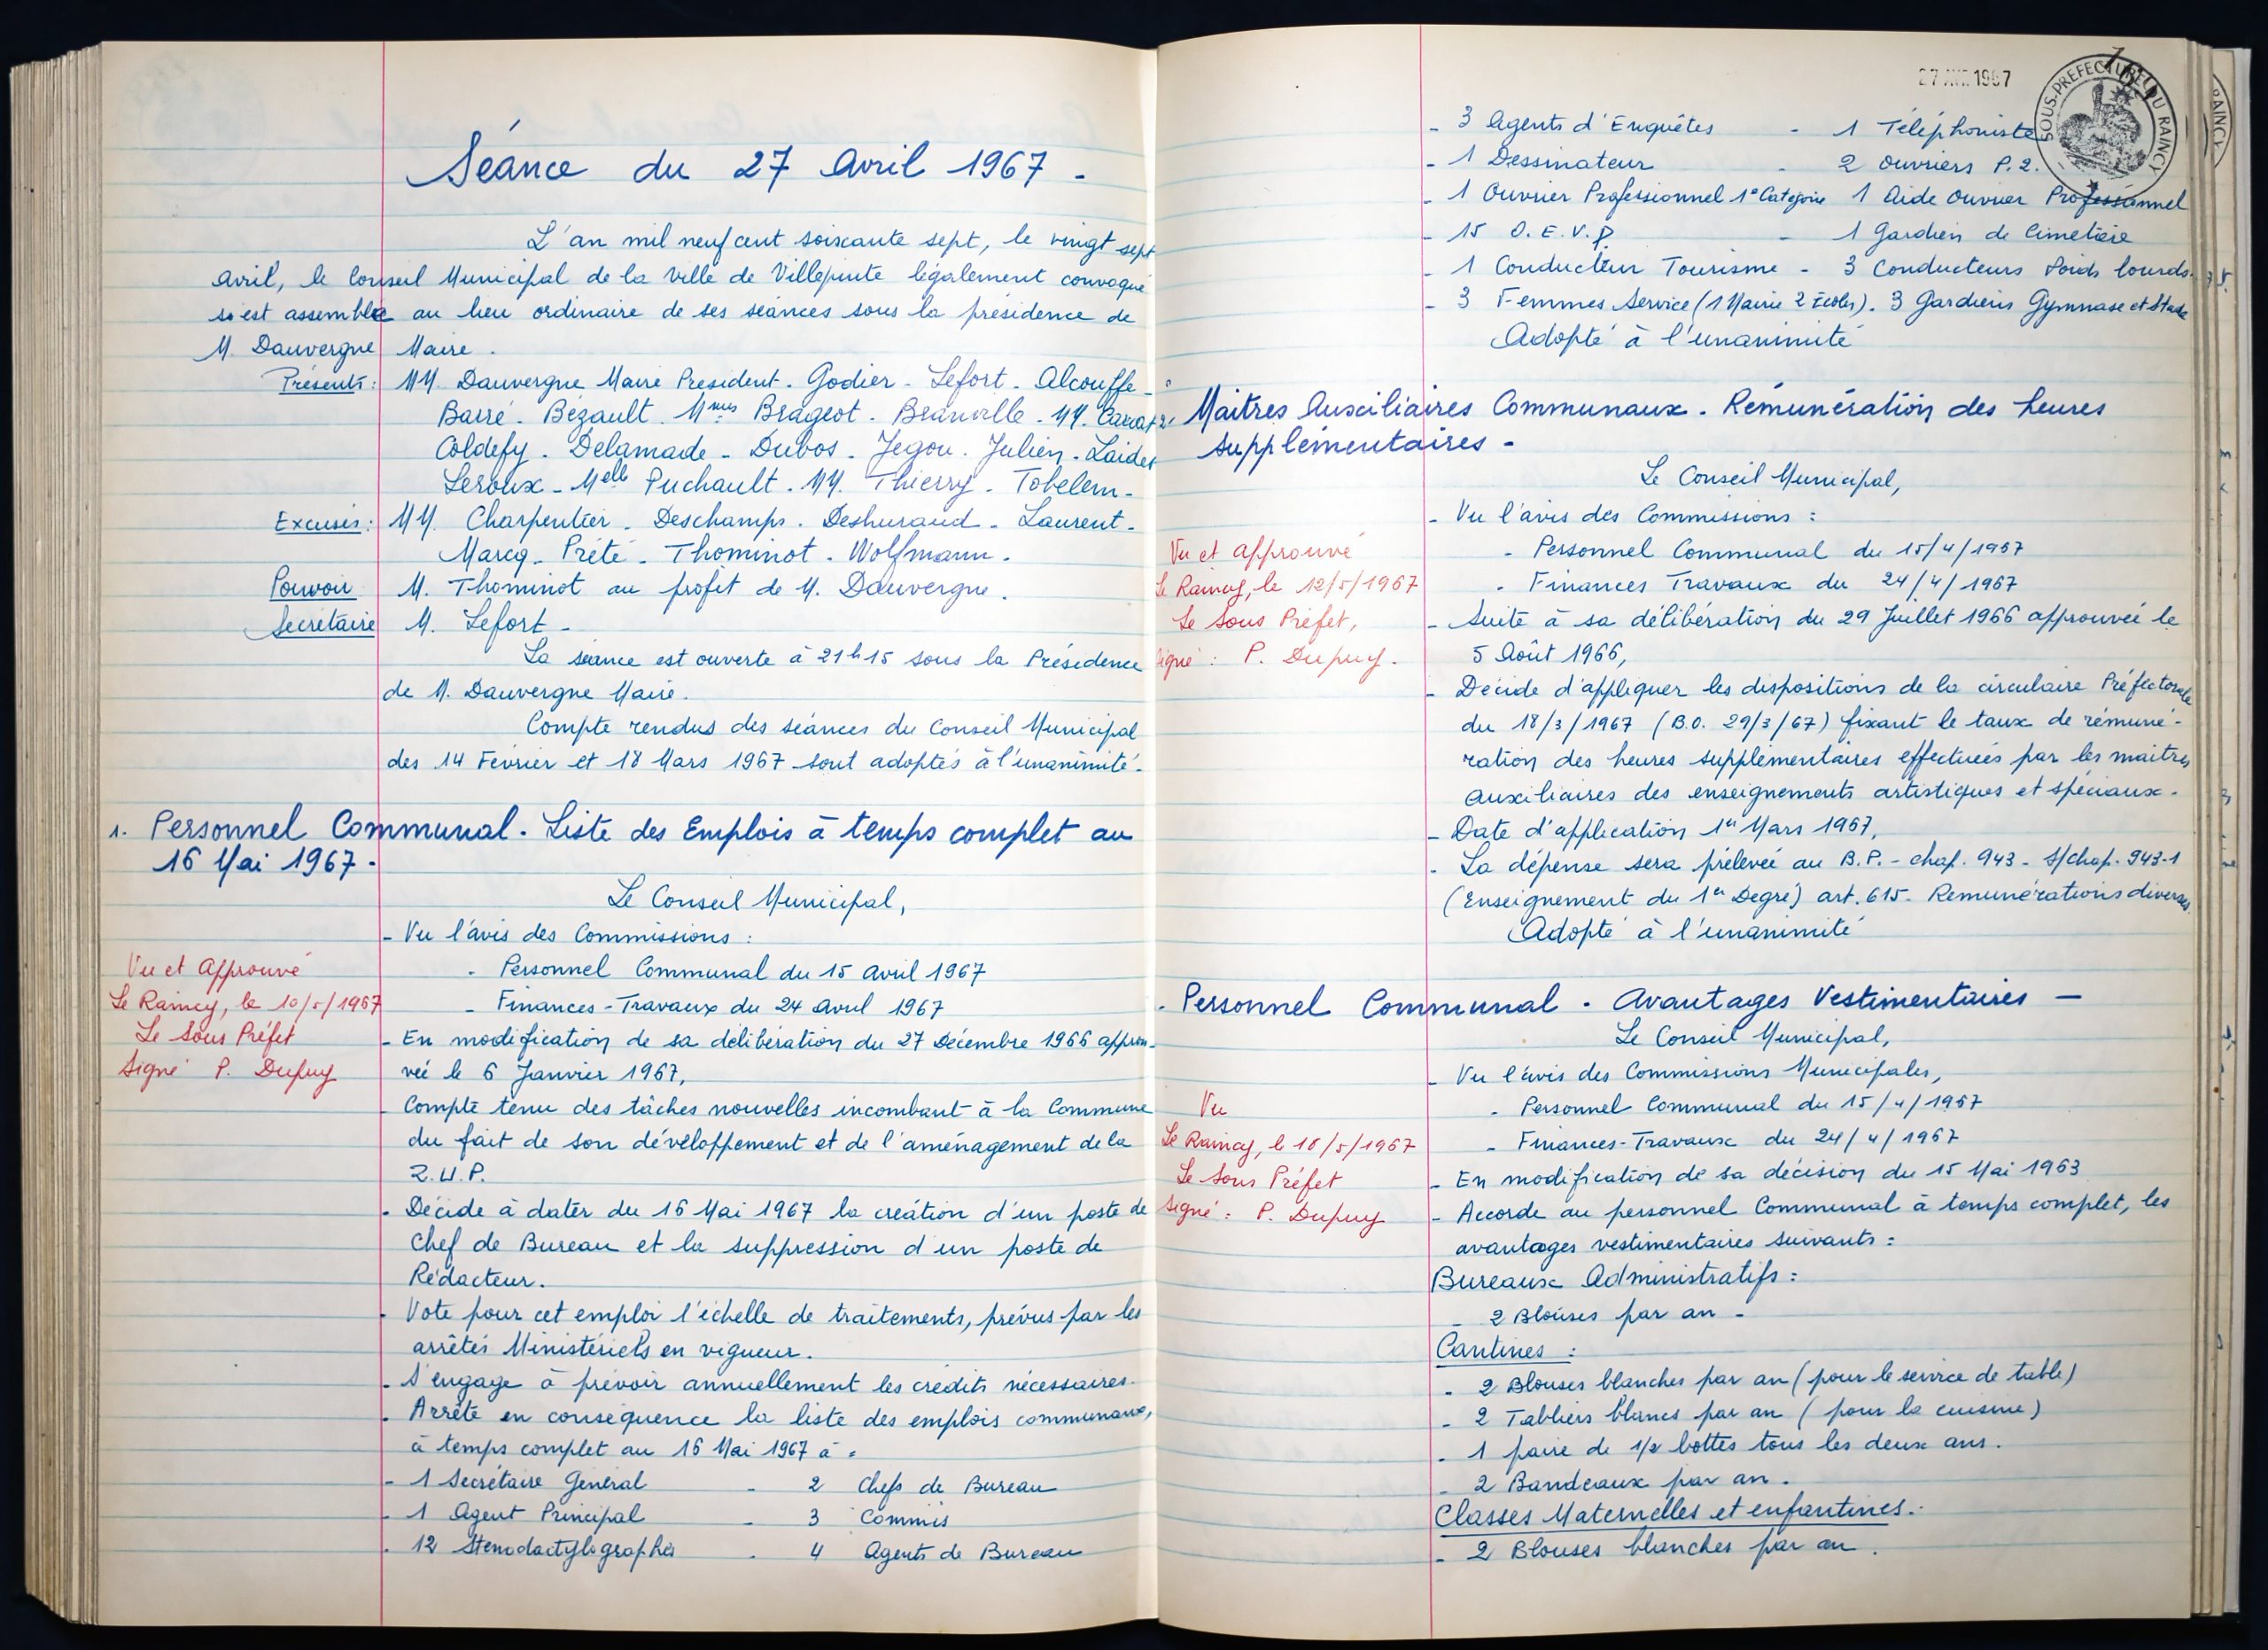 Séance du 27 Avril 1967 -
L'an mil neuf cent soixante sept, le vingt sept
Avril, le Conseil Municipal de la Ville de Villepinte légalement convoqué
s'est assemblé au lieu ordinaire de ses séances sous la présidence de
M. Dauvergne Maire.
Présents : MM. Dauvergne Maire Président - Godier - Lefort - Alcouffe -
Barré - Bézault - Mmes Brageot - Branville - MM.
Coldefy - Delamade - Dubos - Jegou - Julien - Laidet
Leroux - Melle Puchault - MM. Thierry - Tobelem -
Excusés : MM. Charpentier - Deschamps - - Laurent -
Marcq - Prété - Thominot - Wolfmann.
Pouvoir M. Thominot au profit de M. Dauvergne.
Secrétaire M. Lefort -
La séance est ouverte à 21h15 sous la Présidence
de M. Dauvergne Maire.
Compte rendus des séances du Conseil Municipal
des 14 Février et 18 Mars 1967 sont adoptés à l'unanimité.
1. Personnel Communal - Liste des Emplois à temps complet au
16 Mai 1967 -
Le Conseil Municipal,
- Vu l'avis des Commissions :
- Personnel Communal du 15 Avril 1967
- Finances - Travaux du 24 Avril 1967
Vu et Approuvé
Le Raincy, le 10/5/1967
Le Sous Préfet
Signé P. Dupuy
- En modification de sa délibération du 27 Décembre 1966 approu-
vée le 6 Janvier 1967,
- Compte tenu des tâches nouvelles incombant à la Commune
du fait de son développement et de l'aménagement de la
Z.U.P.
- Décide à dater du 16 Mai 1967 la création d'un poste de
Chef de Bureau et la suppression d'un poste de
Rédacteur.
- Vote pour cet emploi l'échelle de traitements, prévus par les
arrêtés Ministériels en vigueur.
- S'engage à prévoir annuellement les crédits nécessaires.
- Arrête en conséquence la liste des emplois communaux,
à temps complet au 16 Mai 1967 à :
- 1 Secrétaire Général - 2 Chefs de Bureau
- 1 Agent Principal - 3 Commis
- 12 Sténodactylographes - 4 Agents de Bureau
27 AVR. 1967
SOUS-PREFECTURE DU RAINCY
- 3 Agents d'Enquêtes - 1 Téléphoniste
- 1 Dessinateur - 2 Ouvriers P.2.
- 1 Ouvrier Professionnel 1° Catégorie 1 Aide Ouvrier Professionnel
- 15 O.E.V.P. - 1 Gardien de Cimetière
- 1 Conducteur Tourisme - 3 Conducteurs Poids lourds.
- 3 Femmes Service (1 Mairie 2 Écoles). 3 Gardiens Gymnase et Stade
Adopté à l'unanimité
2. Maitres Auxiliaires Communaux - Rémunération des heures
supplémentaires -
Le Conseil Municipal,
- Vu l'avis des Commissions :
- Personnel Communal du 15/4/1967
- Finances Travaux du 24/4/1967
Vu et Approuvé
Le Raincy, le 12/5/1967
Le Sous Préfet,
Signé : P. Dupuy.
- Suite à sa délibération du 29 Juillet 1966 approuvée le
5 Août 1966,
- Décide d'appliquer les dispositions de la circulaire Préfectorale
du 18/3/1967 (B.O. 29/3/67) fixant le taux de rémuné-
ration des heures supplémentaires effectuées par les maitres
auxiliaires des enseignements artistiques et spéciaux.
- Date d'application 1er Mars 1967,
- La dépense sera prélevée au B.P. - chap. 943 - S/chap. 943-1
(Enseignement du 1er Degré) art. 615 - Rémunérations diverses.
Adopté à l'unanimité
- Personnel Communal - Avantages Vestimentaires -
Le Conseil Municipal,
- Vu l'avis des Commissions Municipales,
- Personnel Communal du 15/4/1967
- Finances - Travaux du 24/4/1967
Vu
Le Raincy, le 10/5/1967
Le Sous Préfet
Signé : P. Dupuy
- En modification de sa décision du 15 Mai 1963
- Accorde au personnel Communal à temps complet, les
avantages vestimentaires suivants :
Bureaux Administratifs :
- 2 Blouses par an -
Cantines :
- 2 Blouses blanches par an (pour le service de table)
- 2 Tabliers blancs par an (pour la cuisine)
- 1 paire de 1/2 bottes tous les deux ans.
- 2 Bandeaux par an.
Classes Maternelles et enfantines.
- 2 Blouses blanches par an.